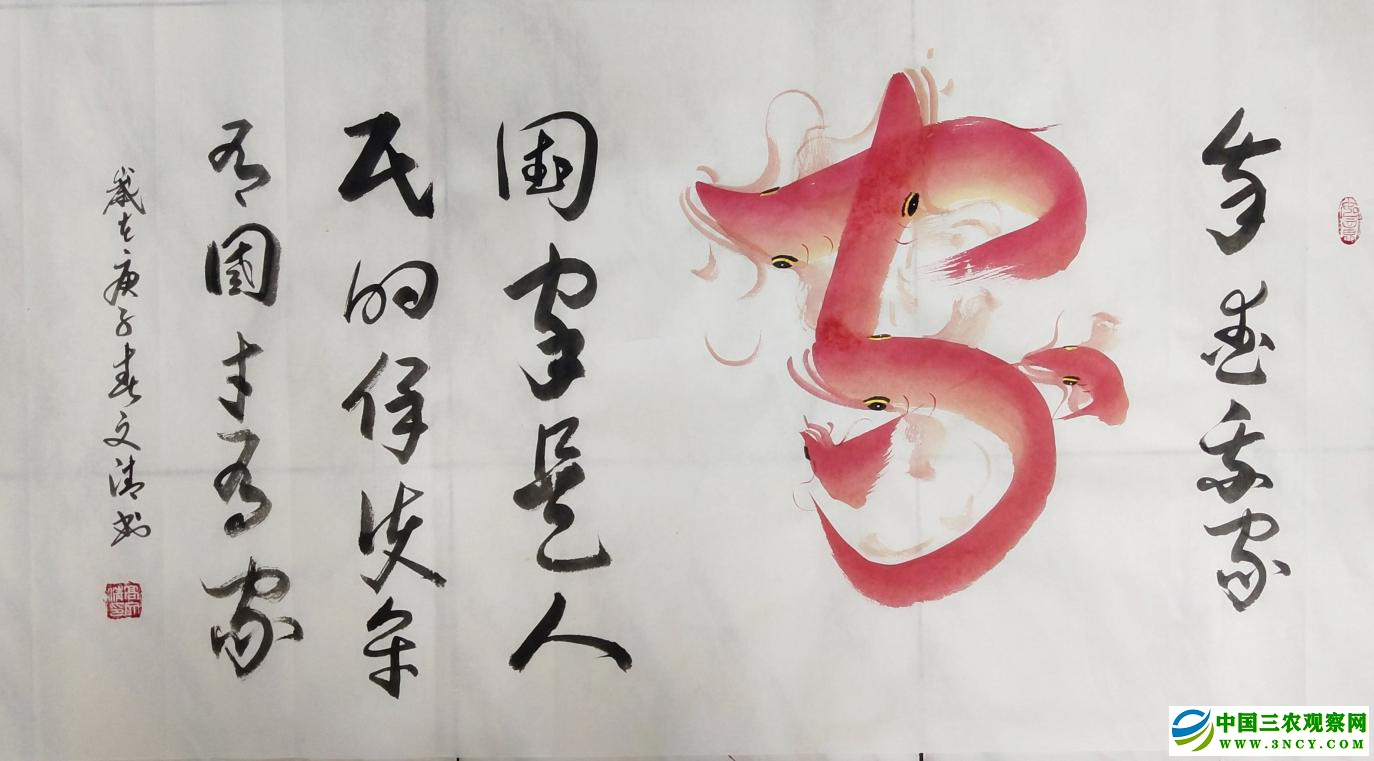 我爱我家
国家是人
民的保護伞
有国才有家
歲在庚子春文清书
中国三农观察网
WWW.3NCY.COM